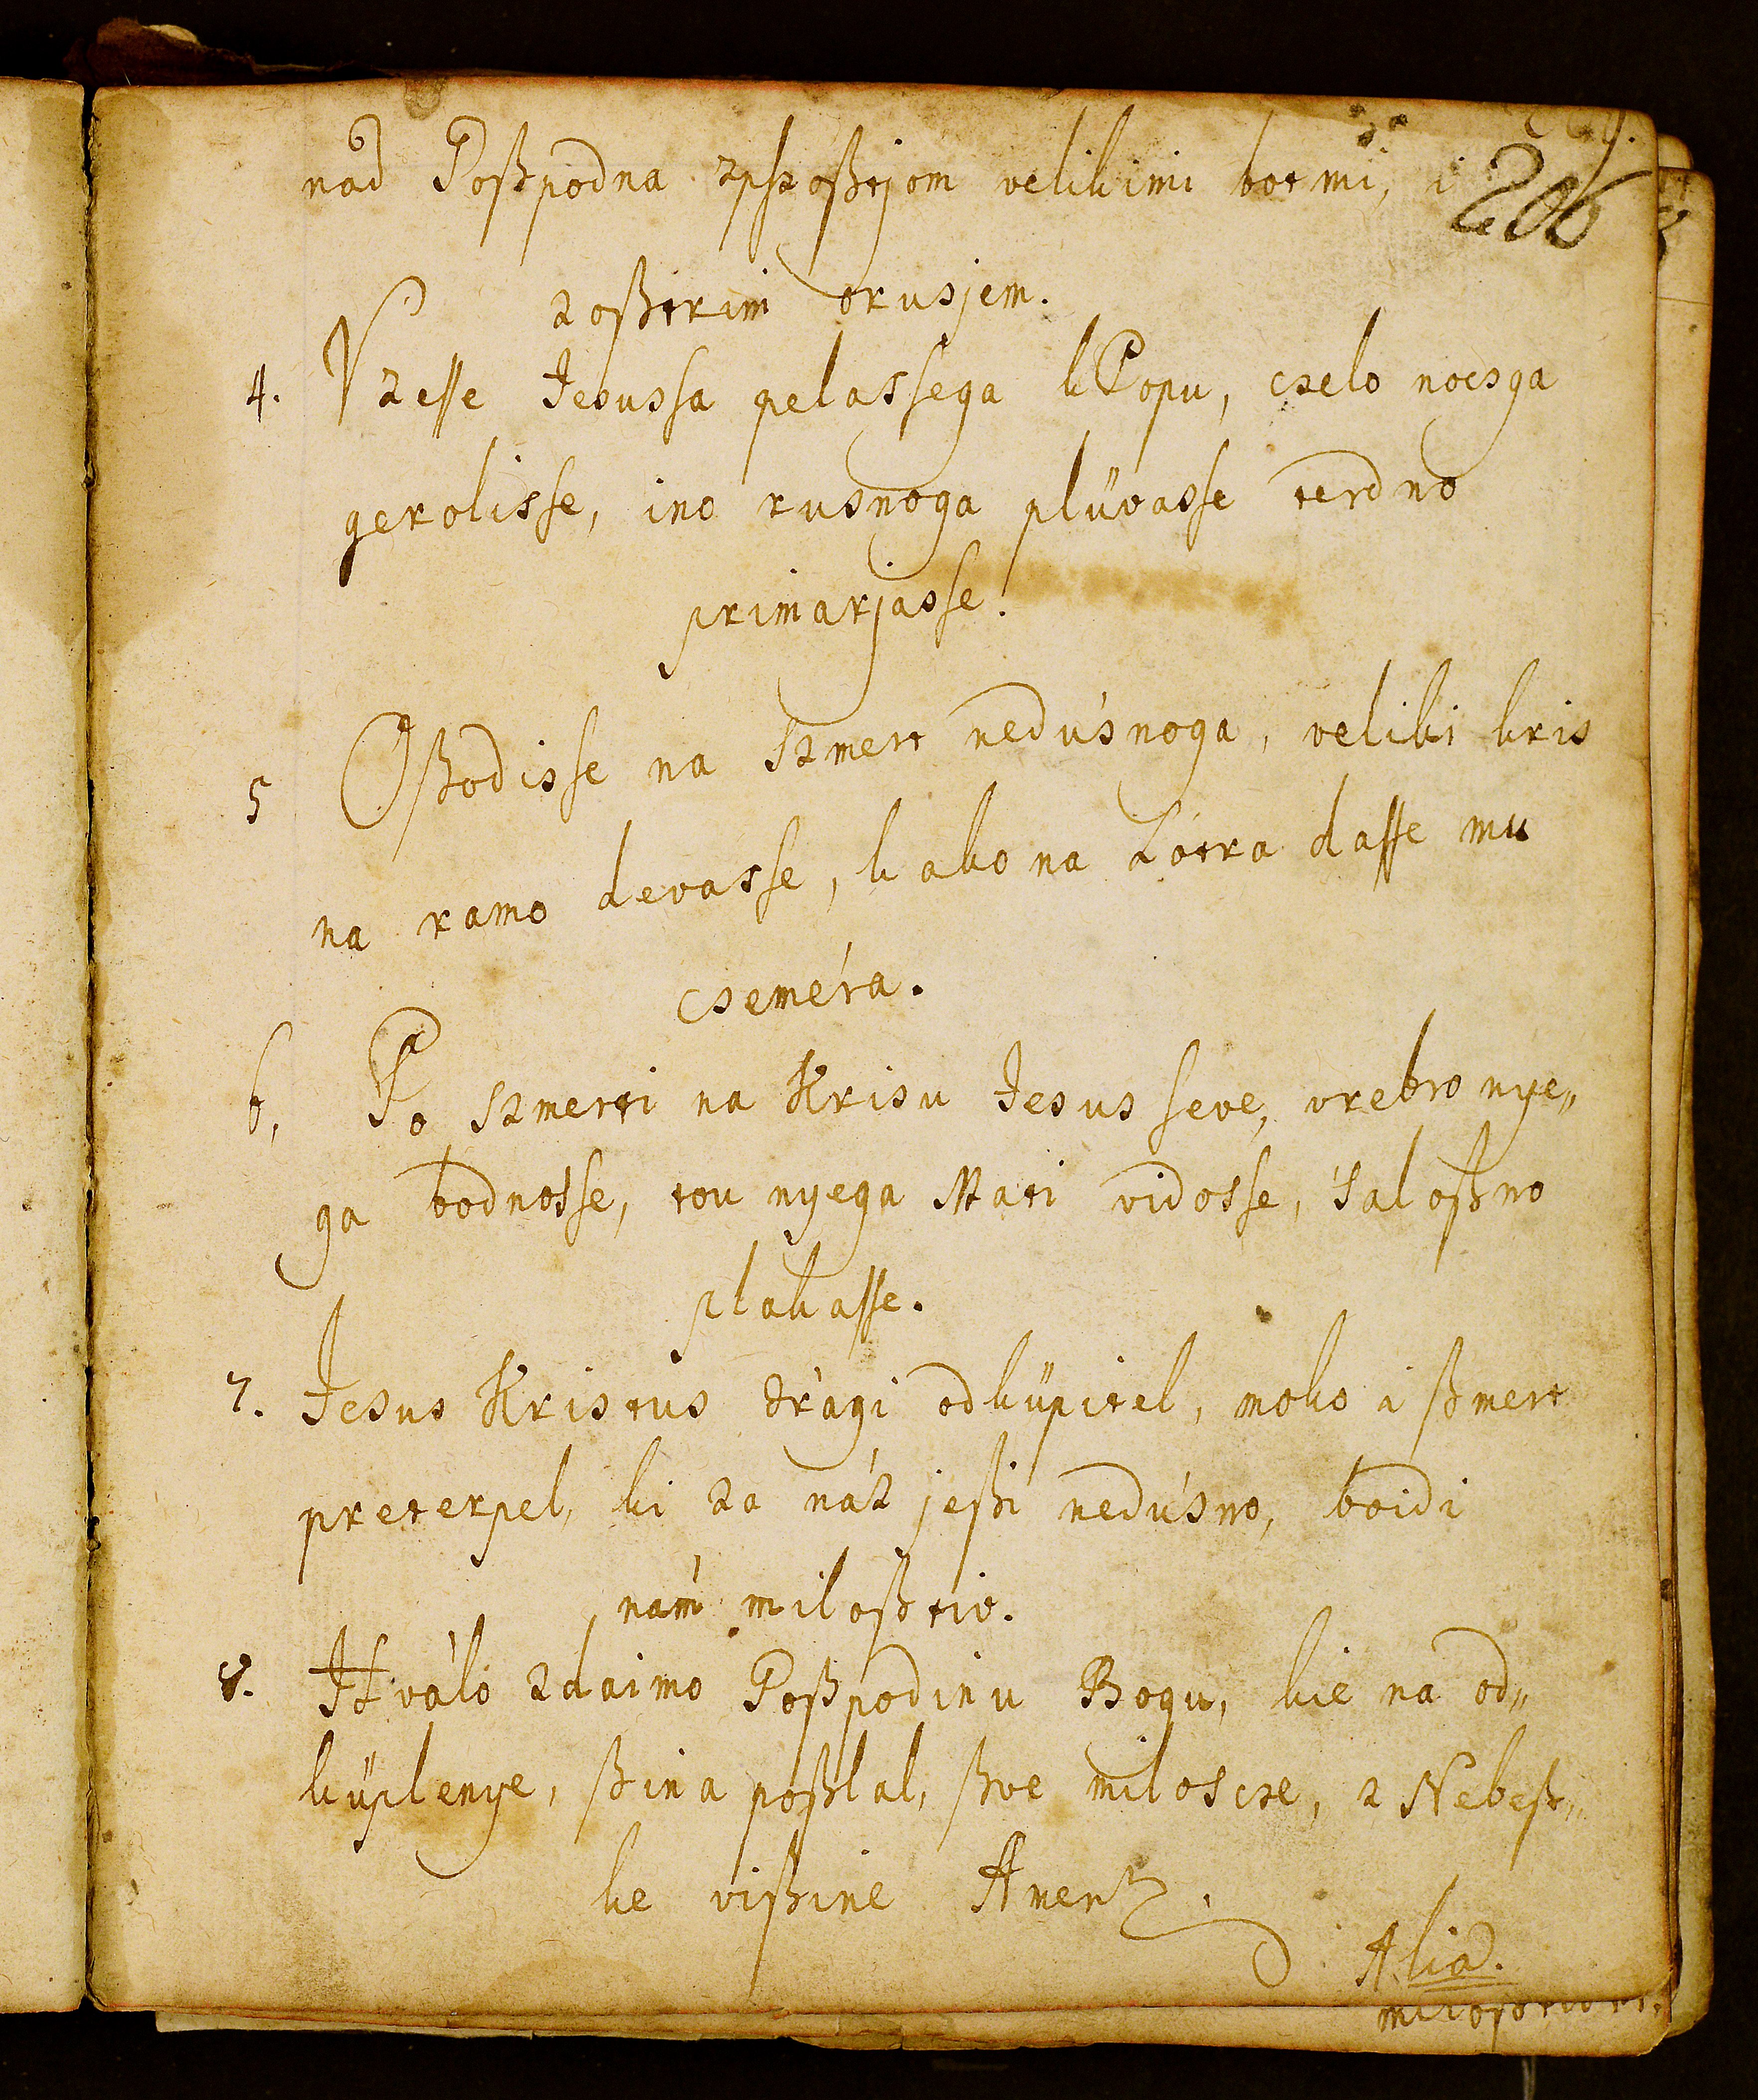 206
nad Goßpodna zpsoßtjom velikimi botmi, i
zoßtrim orusjem.
4. Vzesse Jesussa pelassega k Popu, czelo nocsga
gerolisse, ino rusnoga plüvasse terdno
primarjasse.
5 Oßodisse na szmert nedúsnoga, veliki kris
na ramo devasse, kako na Lótra dasse mu
cseméra.
6, Po szmerti na Krisu Jesusseve, vrebro nye„
ga bodnosse, tou nyega Mati vidosse, saloßno
plakasse.
7. Jesus Kristus drági odküpitel, moko i ßmert
preterpel, ki za náz jeßi nedúsno, boidi
nám miloßtiv.
8. Hváló zdaimo Goßpodinu Bogu, kie na od„
küplenye, ßina poßlal, ßve miloscze, z Nebeß„
ke vißine Amen.
Alia.